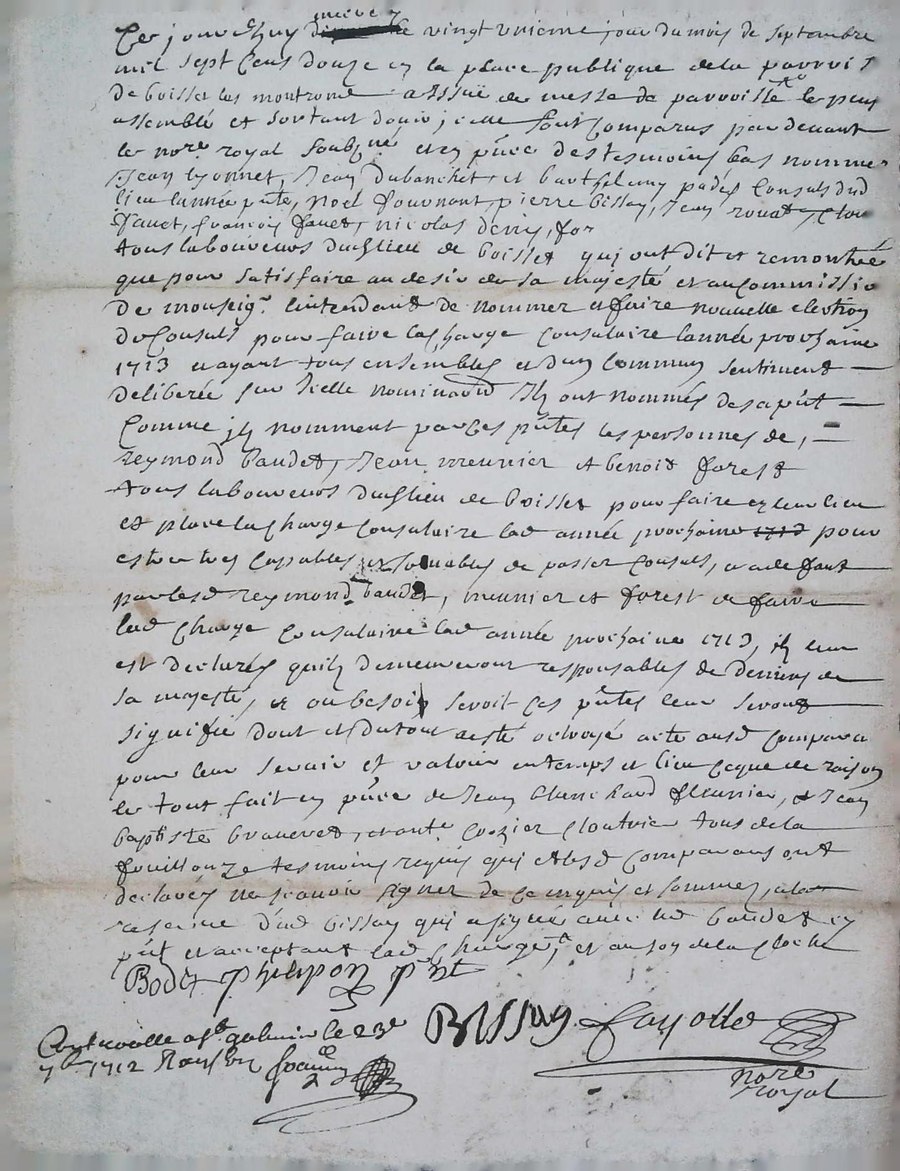 Ce jourdhuy vingt unieme jour du mois de septembre
mil sept cens douze en la place publique de la parroisse
de boisset les montrond a lissue de messe de parroisse le peup
assemblé et sortant douir icelle sont comparus pardevant
le nore royal soubzné et en pnce des tesmoins bas nommes
Jean Lyonnet, Jean dubanchet, et barthelemy pades Consuls dud
lieu lannée pnte, noel fournant, pierre bissay, Jean rouat
fauet, francois fauet, nicolas denis, for
tous laboureurs dud lieu de boisset qui ont dit et remontré
que pour satisfaire au desir de sa majesté et au commissio
de monseigr. lintendant de nommer et faire nouvelle election
de Consuls pour faire la charge Consulaire lannée prochaine
1713 et ayant tous ensembles et dun commun sentiment
deliberée sur Icelle nomina͠on Ils ont nommés des a pnt
Comme ils nomment par ces pntes les personnes de,
reymond baudet, Jean meunier et benoit forest
tous laboureurs dud lieu de boisset pour faire en leur lieu
et place la charge Consulaire lad année prochaine 1713 pour
estre tres capables et solvables de passer Consuls, et a defaut
par lesd reymond baudet, meunier et forest de faire
lad charge Consulaire lad année prochaine 1713, ils leur
est declarés quils demeureront responsables de deniers de
sa majesté, et ou besoin seroit ces pntes leur seront
signifié dont et du tout a esté octroyé acte ausd comparan
pour leur servir et valoir en temps et lieu ce que de raison
le tout fait en pnce de Jean blanchard fleunier, et Jean
baptiste braueret, et ante crozier cloutrier tous de la
fouillouze tesmoins requis qui et lesd comparans ont
declarés ne scavoir signer de ce enquis et sommes, a la
reserve dud bissay qui a signé avec led baudet en
pnt et acceptant lad charge, et au son de la cloche
Bodet phelipon pnt
BISSAY fayolle
Controolle a st galmier le 23e
7bre 1712 Reçu
nore
royal